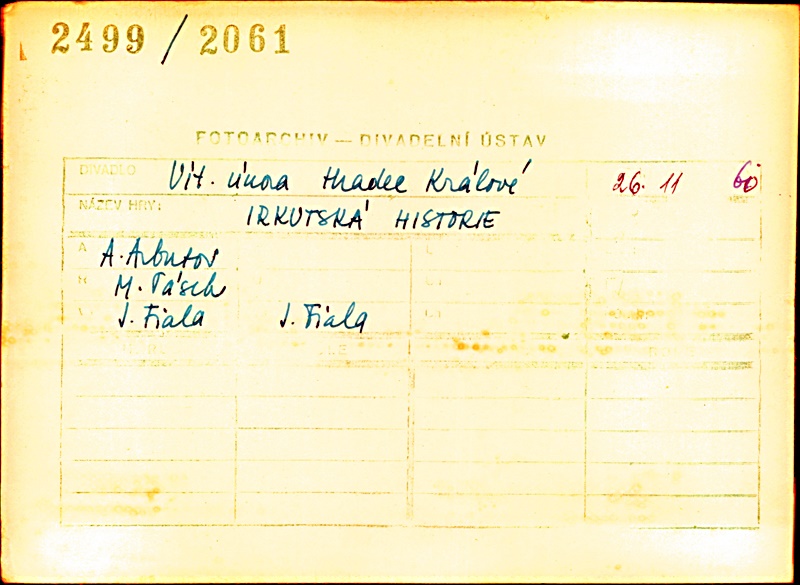 2499 / 2061
FOTOARCHIV — DIVADELNÍ ÚSTAV
DIVADLO Vít. února Hradec Králové 26. 11 60
NÁZEV HRY: IRKUTSKÁ HISTORIE
A A. Arbuzov
R M. Pásek
V J. Fiala J. Fiala